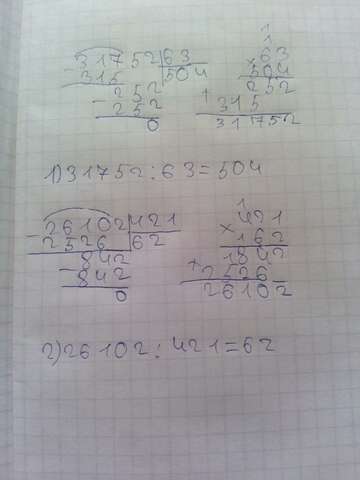 1
1
31752|63 ×63
-315 |504 504
252 252
-252 +315
0 31752
1) 31752:63=504
1
26102|421 421
-2526 |62 ×162
842 1842
-842 +2526
0 26102
2) 26102:421=62